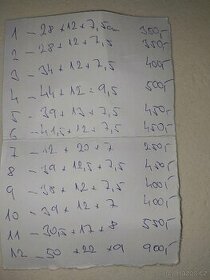 1 - 28 + 12 + 7,5cm 350,-
2 - 28 + 12 + 7,5 350,-
3 - 34 + 12 + 7,5 400,-
4 - 44 + 12 + 9,5 500,-
5 - 39 + 13 + 7,5 450,-
6 - 41,5 + 12 + 7,5 450,-
7 - 12 + 20 + 7 250,-
8 - 39 + 12,5 + 7,5 450,-
9 - 38 + 12 + 7,5 400,-
10 - 39 + 12 + 7 400,-
11 - 30,5 + 17 + 8 550,-
12 - 50 + 22 + 9 900,-